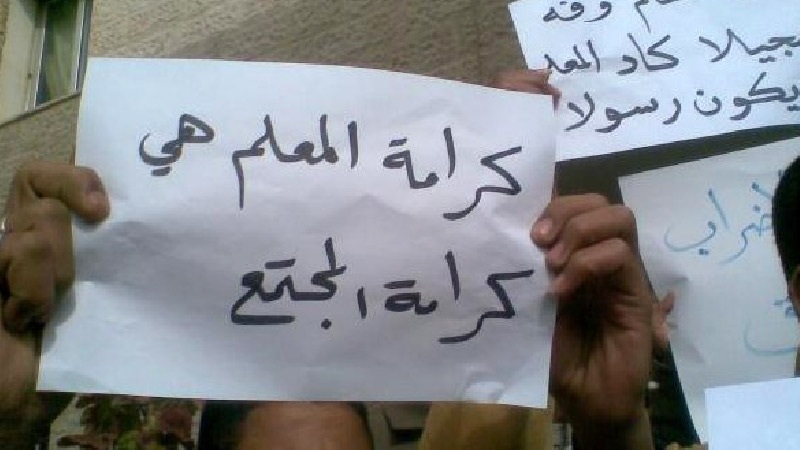 كرامة المعلم هي
كرامة المجتمع
وفه
كاد المعلـ
يكون رسولا
ضراب